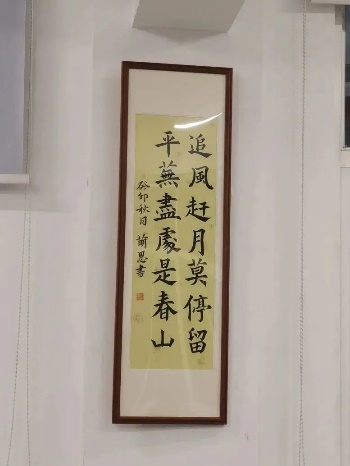 追風赶月莫停留
平蕪盡處是春山
癸卯秋月 喻恩書